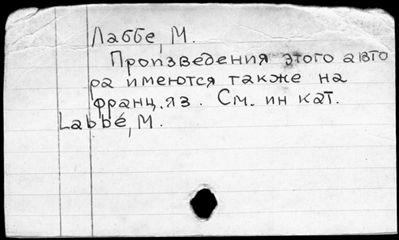 Лаббе, М.
Произведения этого авто
ра имеются также на
франц. яз. См. ин кат.
Labbé, M.